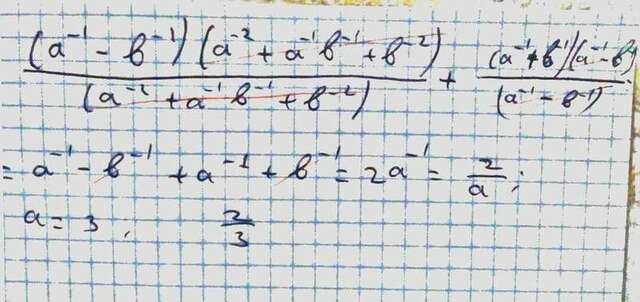 (a⁻¹ - b⁻¹)(a⁻² + a⁻¹b⁻¹ + b⁻²) / (a⁻² + a⁻¹b⁻¹ + b⁻²) + (a⁻¹ + b⁻¹)(a⁻¹ - b⁻¹) / (a⁻¹ - b⁻¹)
= a⁻¹ - b⁻¹ + a⁻¹ + b⁻¹ = 2a⁻¹ = 2/a ;
a = 3 ; 2/3